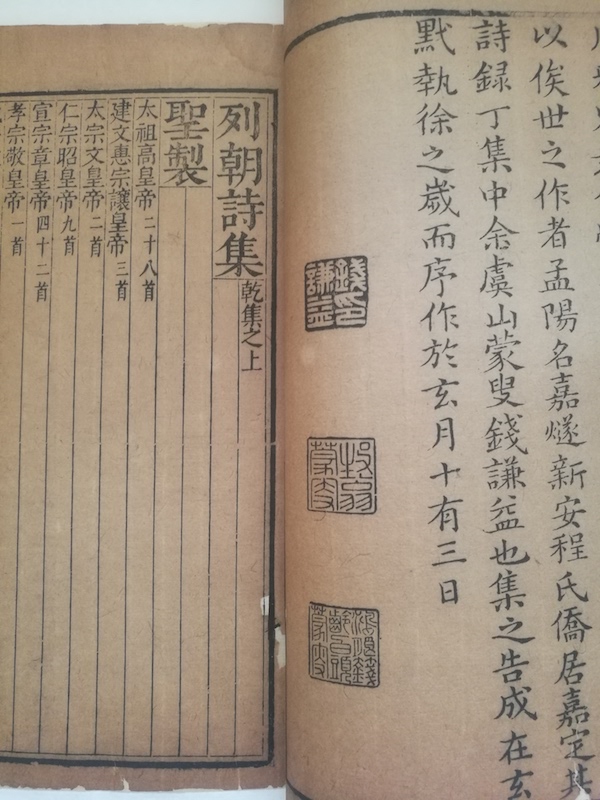 以俟世之作者孟陽名嘉燧新安程氏僑居嘉定其
詩録丁集中余虞山蒙叟錢謙益也集之告成在玄
黓執徐之歲而序作於玄月十有三日
錢印謙益
牧翁蒙叟
列朝詩集乾集之上
聖製
太祖高皇帝二十八首
建文惠宗讓皇帝三首
太宗文皇帝二首
仁宗昭皇帝九首
宣宗章皇帝四十二首
孝宗敬皇帝一首